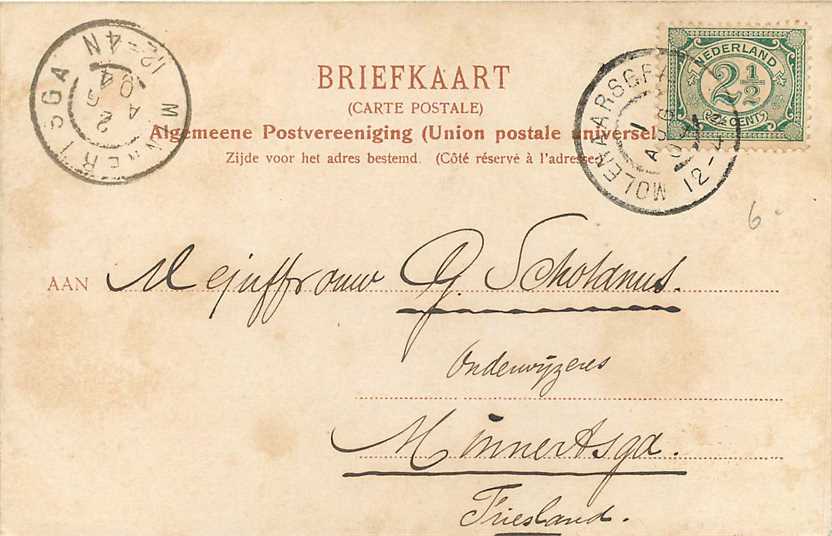 BRIEFKAART
(CARTE POSTALE)
Algemeene Postvereeniging (Union postale universel
Zijde voor het adres bestemd. (Côté réservé à l'adresse)
NEDERLAND
2½
(2½ CENT)
MOLENAARSGRA
1 AUG 04
12-4N
2 AUG 04
12-4N
6.
AAN Mejuffrouw G. Scholdnus.
Onderwijzeres
Minnertsga.
Friesland.